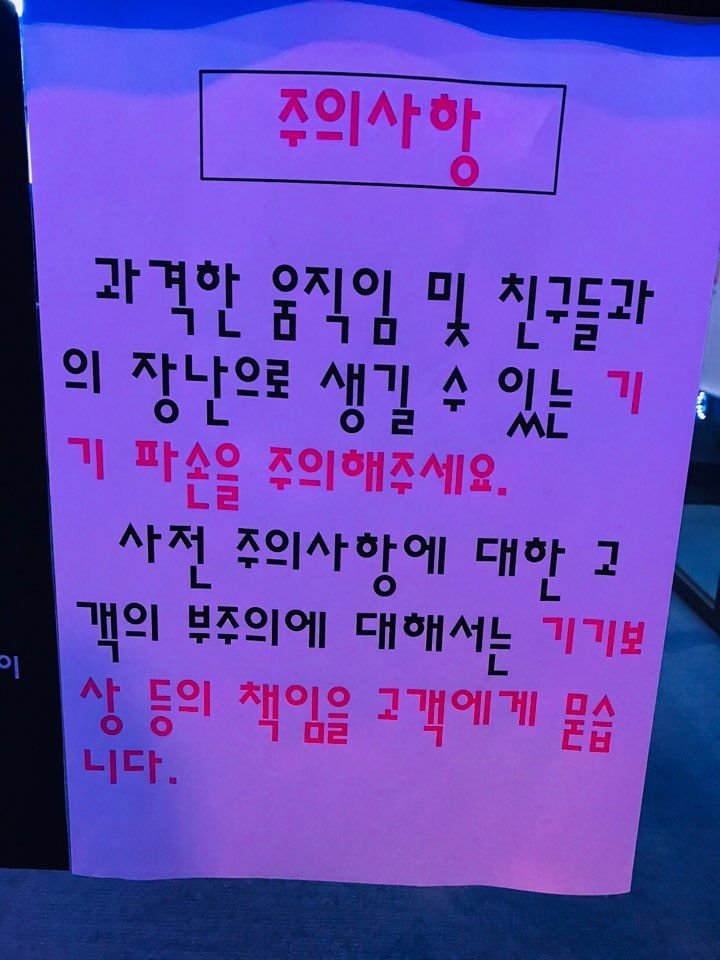 주의사항
과격한 움직임 및 친구들과
의 장난으로 생길 수 있는 기
기 파손을 주의해주세요.
사전 주의사항에 대한 고
객의 부주의에 대해서는 기기보
상 등의 책임을 고객에게 묻습
니다.
이